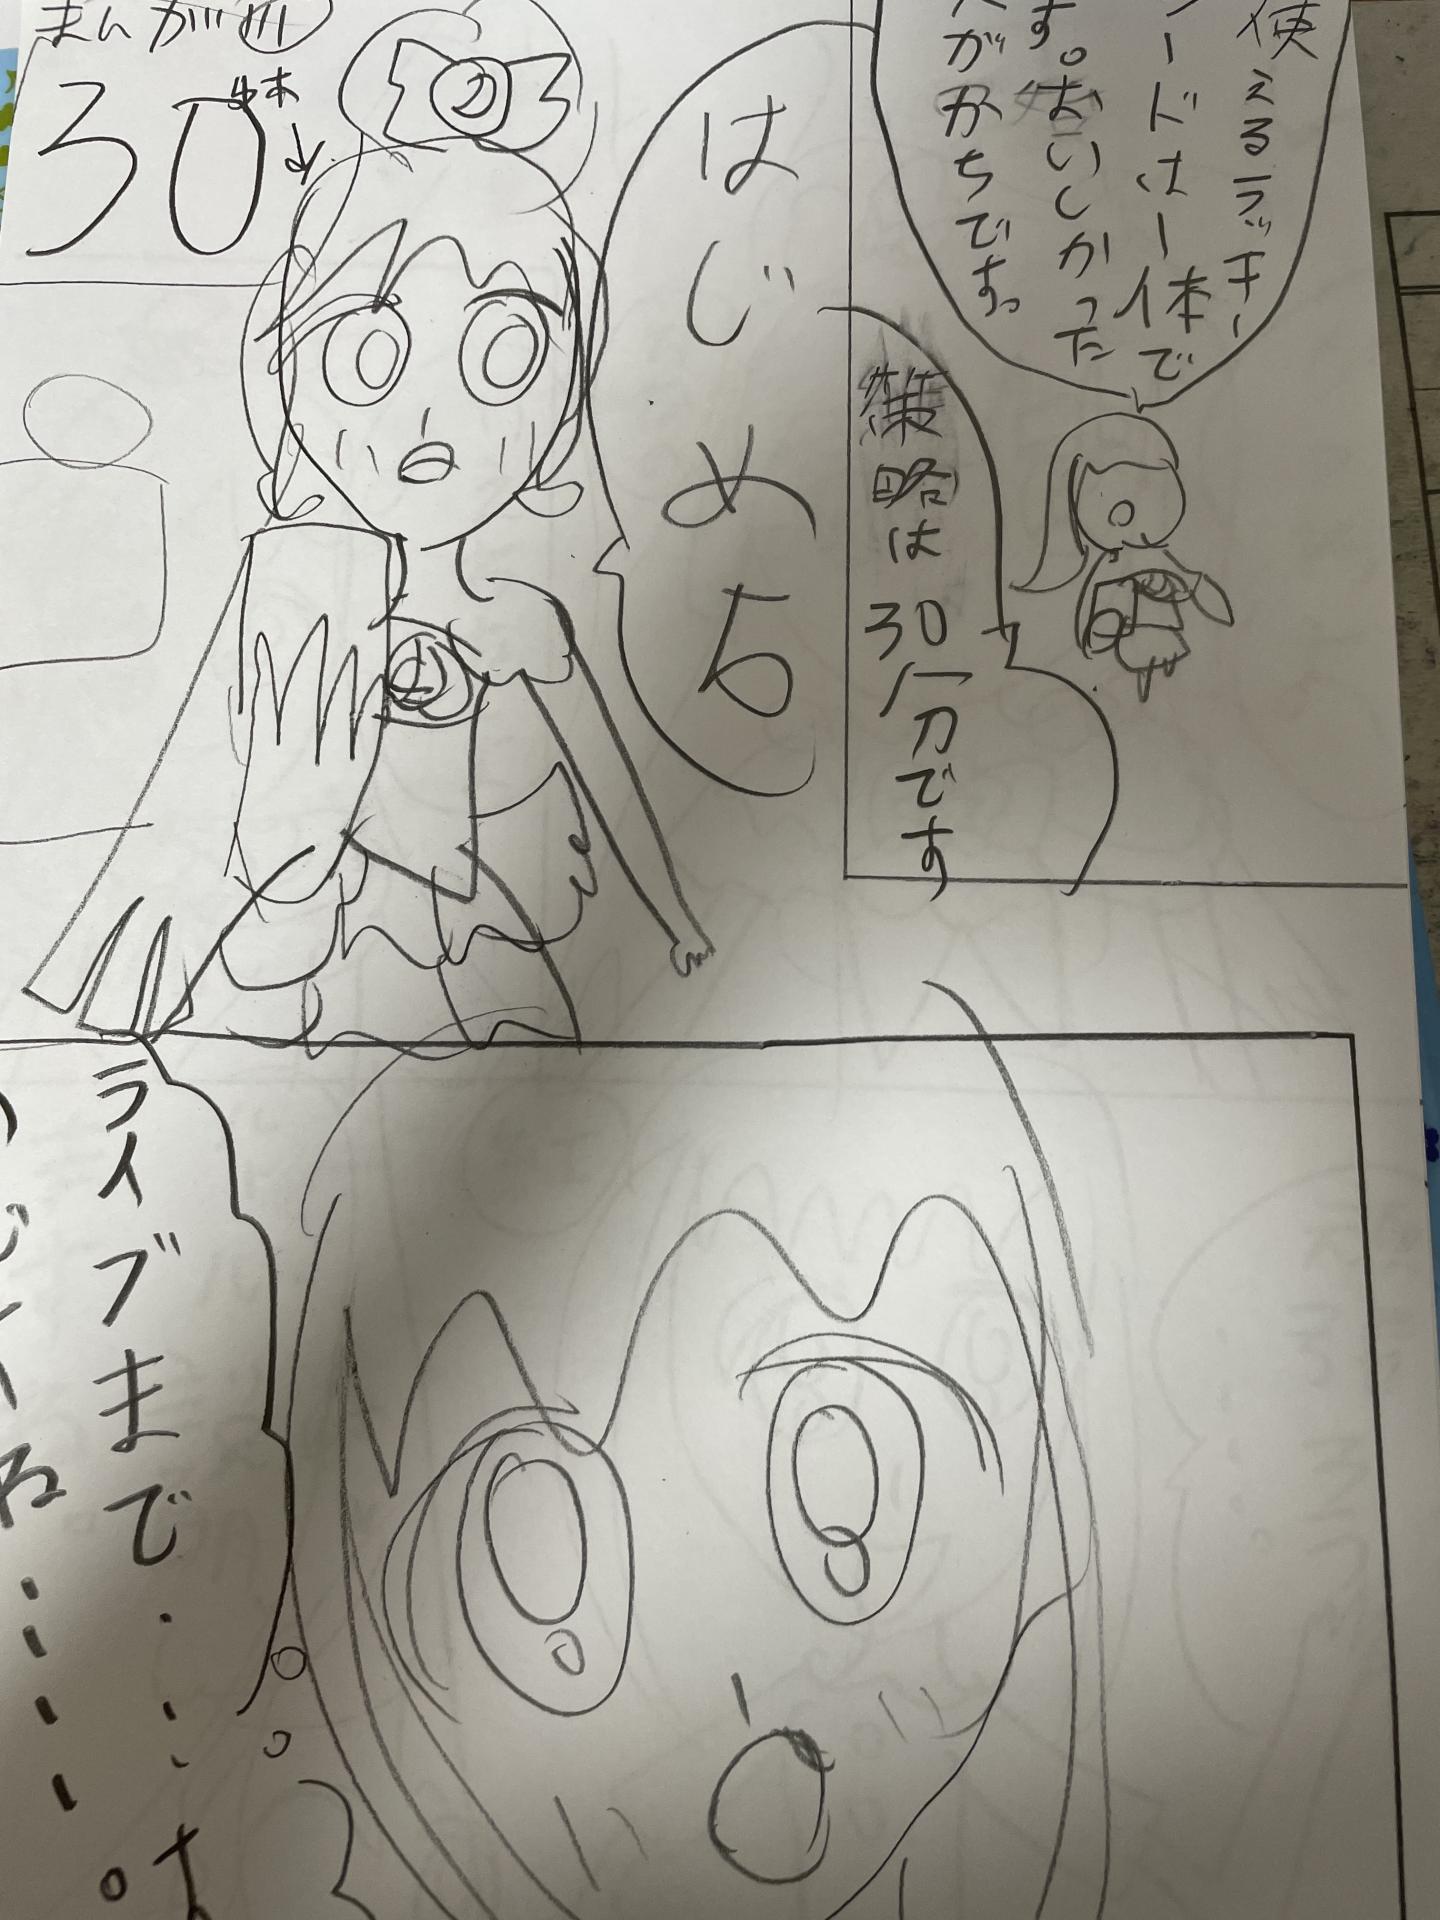 使えるラッキー
ードは一体で
す。おいしかった
がかちです。
策略は30分です
はじめ5
まんが
30
ライブまで・・・